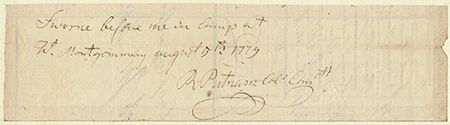 Sworne before me in Camp at
Ft. Montgommury august 5th 1779
R Putnam Colo Comdtt